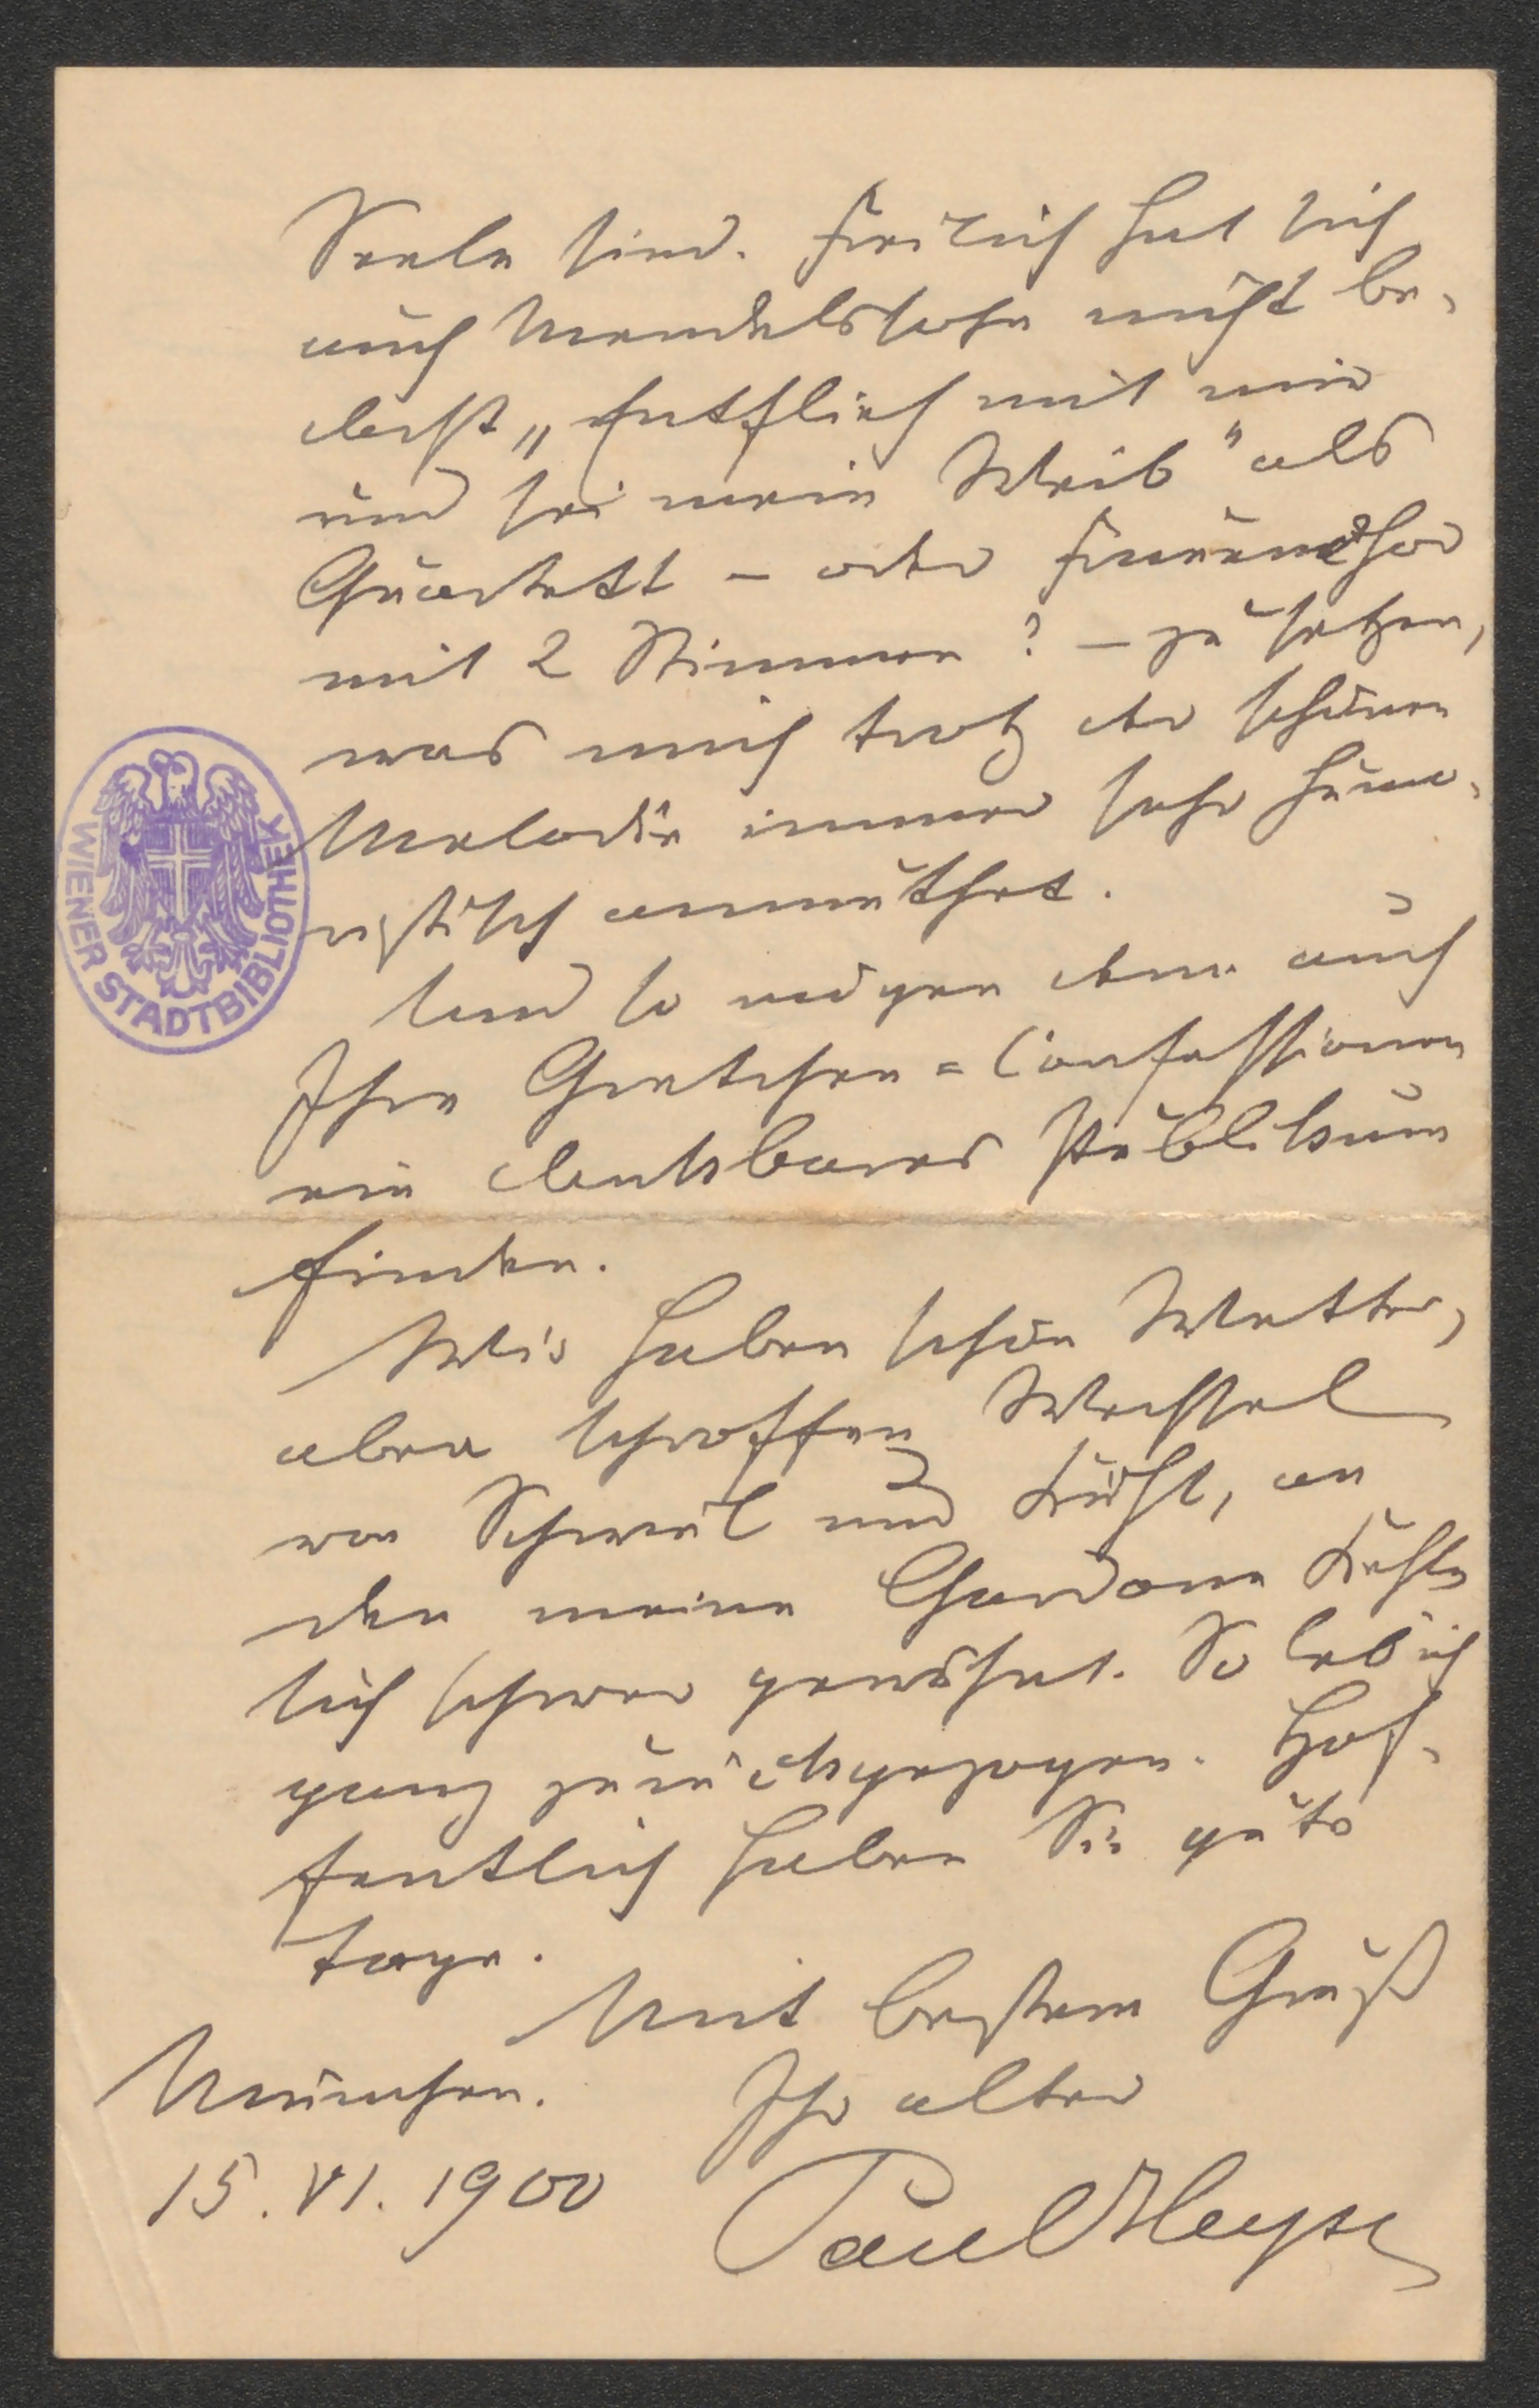 Seele sind. Freilich hat sich
auch Mendelssohn nicht be-
dacht „Entflieh mit mir
und sei mein Weib" als
Quartett – oder Frauenchor
mit 2 Stimmen? – zu setzen,
was mich trotz der schönen
Melodie immer sehr humo-
ristisch anmuthet.
Und so mögen denn auch
Ihre Gretchen=Confessionen
ein dankbares Publikum
finden.
Wir haben schön Wetter,
aber schroffen Wechsel
von Schwül und Kühl, an
den meine Gardone Kehle
sich schwer gewöhnt. So leb ich
ganz zurückgezogen. Hof-
fentlich haben Sie gute
Tage.
Mit bestem Gruß
Ihr alter
Paul Heyse
München.
15. VI. 1900
WIENER STADTBIBLIOTHEK